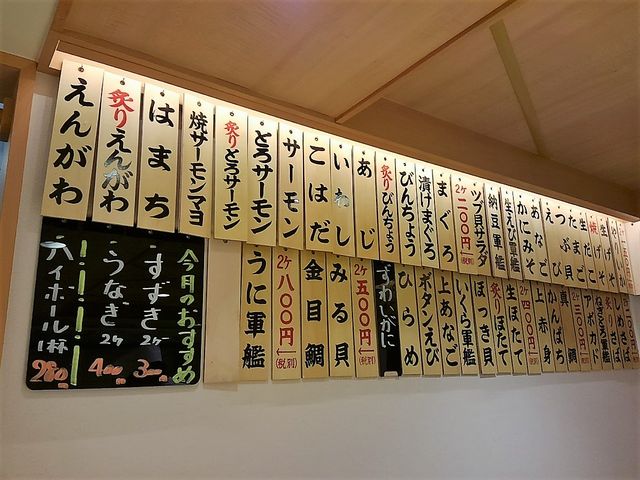 えんがわ
炙りえんがわ
はまち
焼サーモンマヨ
炙りとろサーモン
とろサーモン
サーモン
こはだ
いわし
あじ
炙りびんちょう
びんちょう
漬けまぐろ
まぐろ
2ケ二〇〇円(税別)
ツブ貝サラダ
納豆軍艦
生えび軍艦
かにみそ
あなご
えび
つぶ貝
たまご
生だこ
焼げそ
生げそ
今月のおすすめ
すずき 2ケ 300円
うなぎ 2ケ 400円
ハイボール 1杯 980円
うに軍艦
2ケ八〇〇円(税別)
金目鯛
みる貝
2ケ五〇〇円(税別)
ずわいがに
ひらめ
ボタンえび
上あなご
いくら軍艦
ほっき貝
炙りほたて
生ほたて
2ケ四〇〇円
上赤身
かんぱち
真鯛
2ケ三〇〇円
アボカド